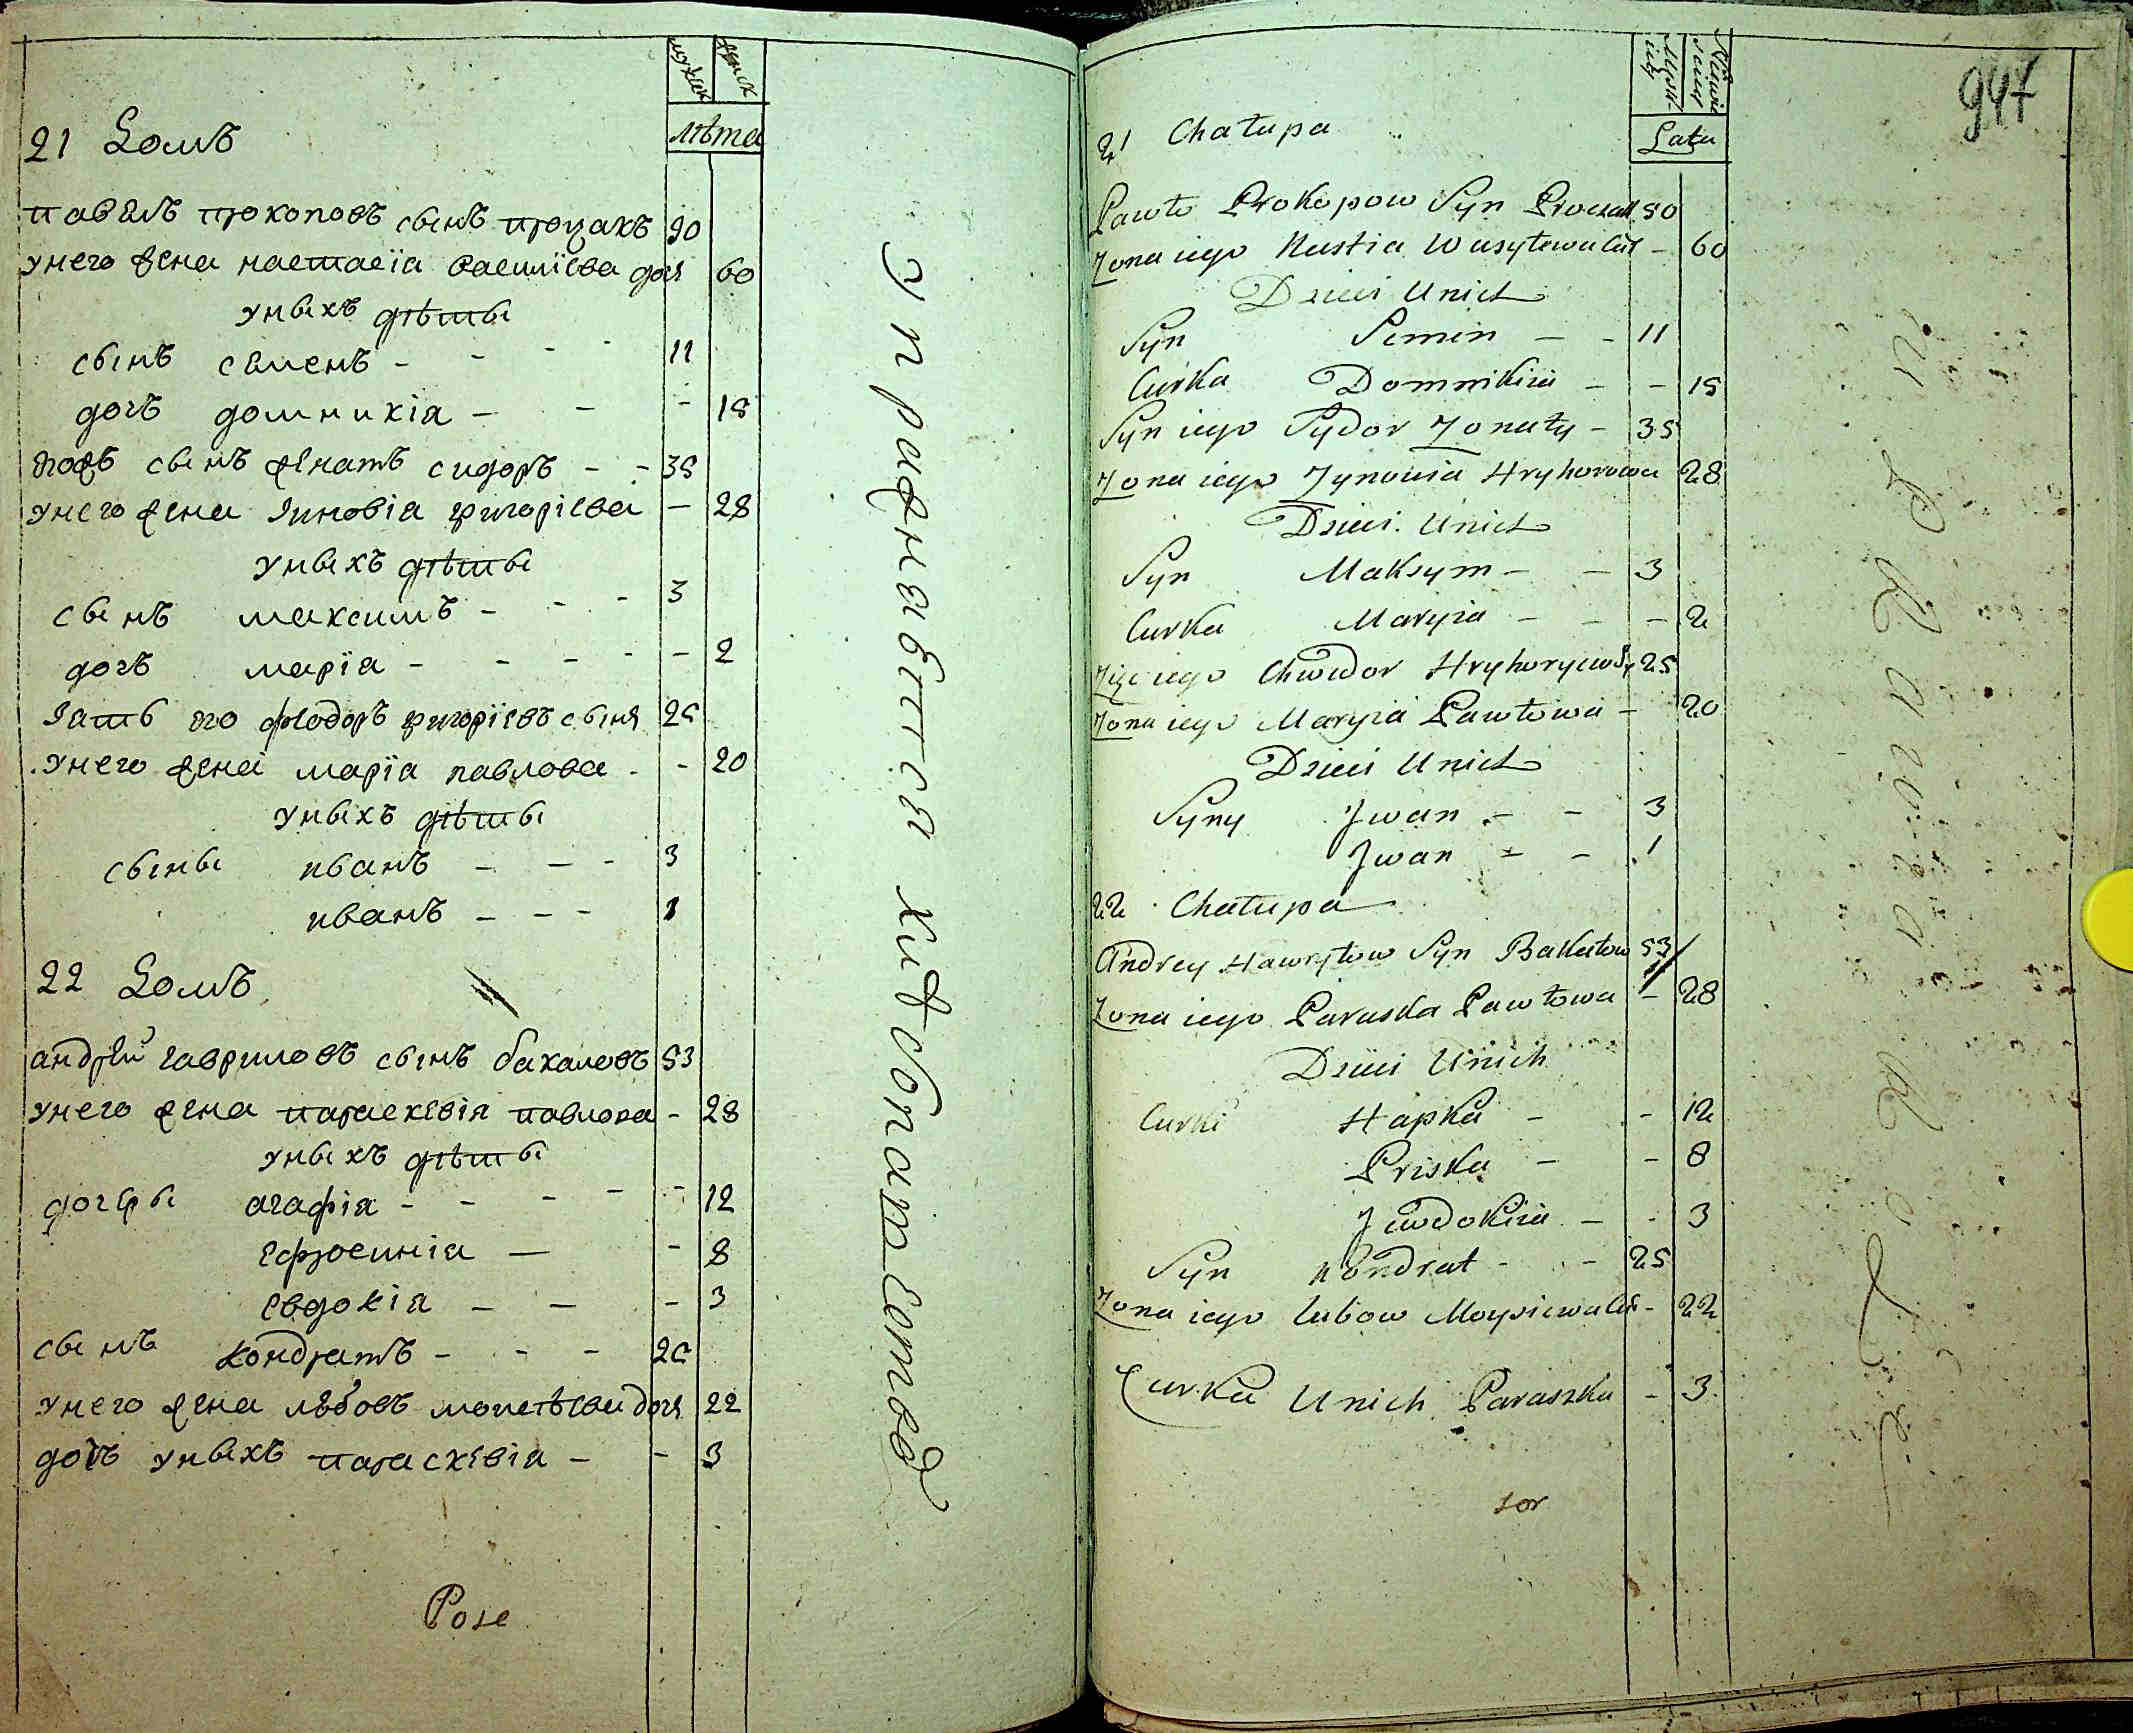 мужск женск
лѣта
21 Домъ
павелъ прокоповъ сынъ процакъ 90
унего жена настасіа василіева дочь 60
уныхъ дѣты
сынъ семенъ - - - - 11
дочъ домникіа - - - 18
тогожъ сынъ женатъ сидоръ - - 35
унего жена зиновіа григоріева - 28
уныхъ дѣты
сынъ максимъ - - - 3
дочъ маріа - - - - - 2
зять его феодоръ григоріевъ сынъ 25
унего жена маріа павлова - - 20
уныхъ дѣты
сыны иванъ - - - 3
иванъ - - - 1
22 Домъ
андрей гавриловъ сынъ бакаловъ 53
унего жена параскевіа павлова - 28
уныхъ дѣты
дочеры агафіа - - - - - 12
ефросиніа - - 8
евдокіа - - - 3
сынъ кондратъ - - - 25
унего жена любовъ моисѣева дочь 22
дочъ уныхъ параскевіа - - 3
Pose
947
Lata
21 Chałupa
Pawło Prokopow Syn Proczak 80
Zona iego Nastia Wasylewa Cur - 60
Dzieci Unich
Syn Semen - - 11
Curka Domnikiia - - 15
Syn iego Sydor Zonaty - 35
Zona iego Zynowia Hryhorowa 28
Dzieci Unich
Syn Maksym - - 3
Curka Maryia - - - 2
Zięc iego Chwedor Hryhoryew Sy 25
Zona iego Maryia Pawłowa - 20
Dzieci Unich
Syny Jwan - - 3
Jwan - - 1
22 Chałupa
Andrey Hawryłow Syn Bakałow 53
Zona iego Paraska Pawłowa - 28
Dzieci Unich
Curki Hapka - - 12
Priska - - 8
Jawdokiia - - 3
Syn Kondrat - - 25
Zona iego Lubow Moysiewa Cur - 22
Curka Unich Paraszka - 3
sor